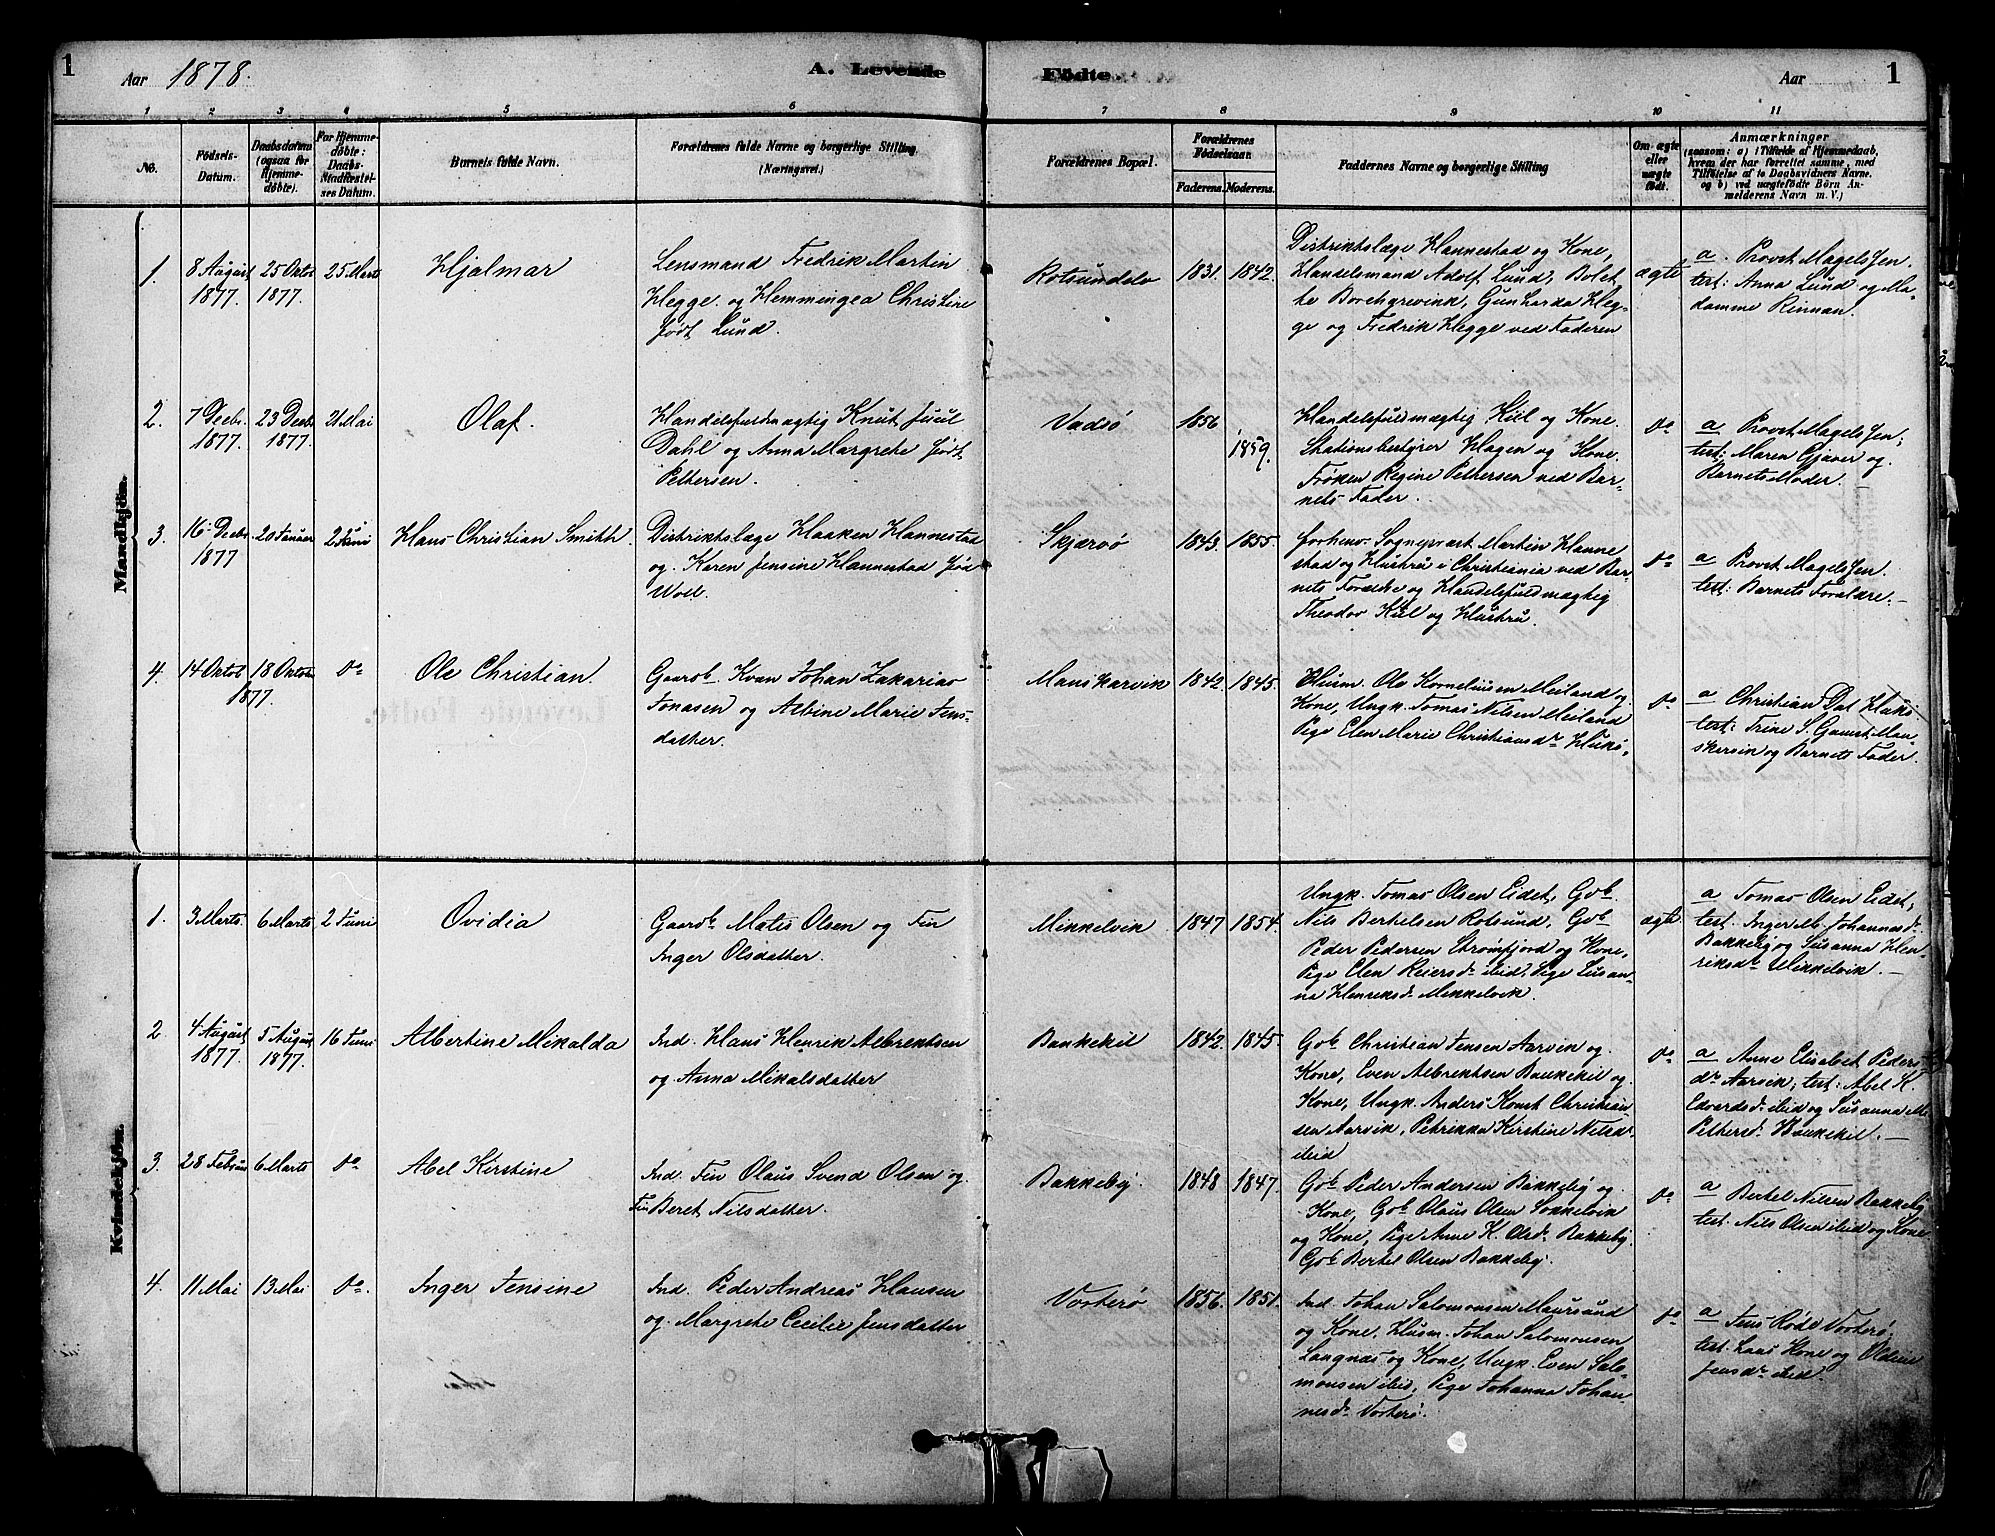 1
Aar 1878.
A. Levende
Födte.
Aar
1
1 2 3 4 5 6 7 8 9 10 11
No.
Födsels-
Datum.
Daabsdatum
(ogsaa for
Hjemme-
döbte).
For Hjemme-
döbte:
Daabs-
Stadfæstel-
ses Datum.
Barnets fulde Navn.
Forældrenes fulde Navne og borgerlige Stilling
(Næringsvei.)
Forældrenes Bopæl.
Forældrenes
Födselsaar
Faderens. Moderens.
Faddernes Navne og borgerlige Stilling
Om ægte
eller
uægte
födt.
Anmærkninger
(saasom: a) i Tilfælde af Hjemmedaab,
hvem der har forrettet samme, med
Tilföielse af to Daabsvidners Navne.
og b) ved uægtefödte Börn An-
melderens Navn m. V.)
Mandkjön.
1.
8 August
1877.
25 Oktbr
1877.
25 Marts
Hjalmar
Lensmand Fredrik Martin
Hegge og Hemmingea Christine
født Lund.
Rotsundelv
1831. 1842.
Distriktslæge Hannestad og Kone,
Handelsmand Adolf Lund, Bolet-
te Borchgrevink, Gunharda Heg-
ge og Fredrik Hegge ved Faderen
ægte
a. Provst Magelssen.
test: Anna Lund og Ma-
damme Rinnan.
2.
7 Decbr.
1877.
23 Decbr
1877.
21 Mai
Olaf.
Handelsfuldmægtig Knut Juul
Dahl og Anna Margrethe født
Pettersen.
Vadsö
1856
1859.
Handelsfuldmægtig Kiil og Kone.
Stationsbestyrer Hagen og Kone.
Frøken Regine Pettersen ved Bar-
nets Fader.
do
a Provst Magelssen;
test: Maren Gjæver og
Barnets Moder.
3.
16 Decbr
1877
20 Januar
2 Juni
Hans Christian Smith
Distriktslæge Haaken Hannestad
og Karen Jensine Hannestad fød
Wold.
Skjærvö
1843. 1855.
forhenv. Sognepræst Martin Hanne
stad og Hustru i Christiania ved Bar-
nets Forældre og Handelsfuldmægtig
Theodor Kiil og Hustru.
do
a Provst Magelssen.
test: Barnets Forældre.
4.
14 Oktob
18 Oktober
1877.
do
Ole Christian.
Gaardb. Kvæn Johan Zakarias
Jonasen og Albine Marie Jens-
datter.
Mauskarvik
1842. 1845.
Husm. Ole Kornelius Meiland og
Kone, Ungk. Tomas Nilsen Meiland
Pige Elen Marie Christiansdr Hukö,
do
a Christian Dal Hukö
test: Trine S. Gamst Mau-
skervik og Barnets Fader.
Kvindekjön.
1.
3 Marts
6 Marts
2 Juni
Ovidia
Gaardb. Matis Olsen og Fin
Inger Olsdatter.
Mikkelvik
1847 1854.
Ungk. Tomas Olsen Eidet, Gob.
Nils Bertelsen Rotsund, Gob
Peder Pedersen Strømfjord og Kone,
Pige Elen Reiersdr ibid, Pige Susan-
na Henriksdr Mikkelvik.
ægte
a Tomas Olsen Eidet;
test. Inger M. Johannesdr
Bakkeby og Susanna Hen-
riksdr Mikkelvik.
2
4 August
1877.
5 August
1877.
16 Juni
Albertine Mikalda
Ind. Hans Henrik Albrektsen
og Anna Mikalsdatter
Baukekil
1842. 1845.
Gob Christian Jensen Aarvik og
Kone, Even Albrektsen Baukekil og
Kone, Ungk. Anders Konst Christian-
sen Aarvik, Petrikka Kirstine Nilsdr.
ibid
do
a Anne Elisabet Peders-
dr Aarvik; test: Abel K.
Edvardsdr ibid og Susanna M.
Pettersdr. Baukekil.
3.
28 Februar
6 Marts
do
Abel Kirstine
Ind. Fin Olaus Svend Olsen og
Fin Beret Nilsdatter.
Bakkeby.
1848 1847.
Gob Peder Andersen Bakkeby og
Kone, Gob Olaus Olsen Sokkelvik
og Kone, Pige Anne K. Olsdr. Bakkeby.
Gob Bertel Olsen Bakkeby.
do
a Bertel Nilsen Bakkeby
test. Nils Olsen ibid og Kone
4.
11 Mai
13 Mai
do.
Inger Jensine
Ind. Peder Andreas Hansen
og Margrete Cecilie Jensdatter
Vorterö
1856. 1851.
Ind. Johan Salomonsen Maursund
og Kone, Husm. Johan Salomonsen
Langnæs og Kone, Ungk. Even Salo-
monsen ibid, Pige Johanna Johan-
nesdr Vorterö.
do
a Jens Röde Vorterö.
test. Lars Kone og Oldine
Jensdr ibid.